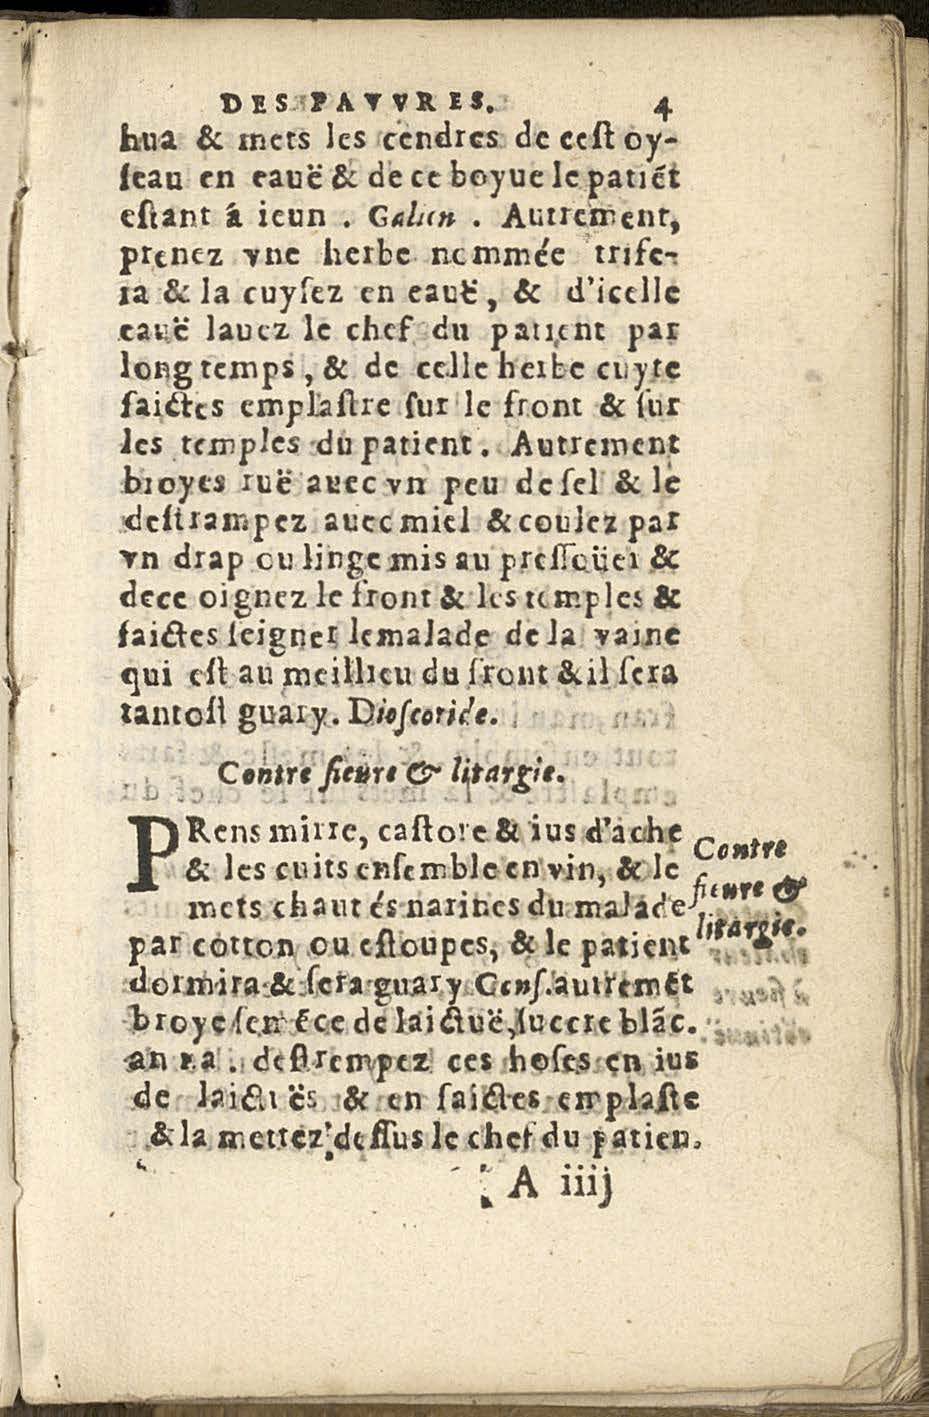 DES PAVVRES. 4
hua & mets les cendres de cest oy-
ſeau en eauë & de ce boyue le patiẽt
eſtant á ieun . Galien . Autrement,
prenez vne herbe nommée trife-
ra & la cuyſez en eauë, & d'icelle
eauë lauez le chef du patient par
long temps, & de celle herbe cuyte
faictes emplaſtre ſur le front & ſur
les temples du patient. Autrement
broyes ruë auec vn peu de ſel & le
deſtrampez auec miel & coulez par
vn drap ou linge mis au preſſoüer &
dece oignez le front & les temples &
faictes ſeigner lemalade de la vaine
qui eſt au meillieu du front & il ſera
tantoſt guary. Dioſcoride.
Contre fieure & litargie.
PRens mirre, caſtore & ius d'ache
& les cuits enſemble en vin, & le
mets chaut és narines du malade
par cotton ou eſtoupes, & le patient
dormira & ſera guary Conſ. autremẽt
broye ſemẽce de laictuë, ſuccre blãc.
an ʒ.a . deſtrempez ces hoſes en ius
de laictuës & en faictes emplaſte
& la mettez deſſus le chef du patien.
A iiij
Contre
fieure &
litargie.